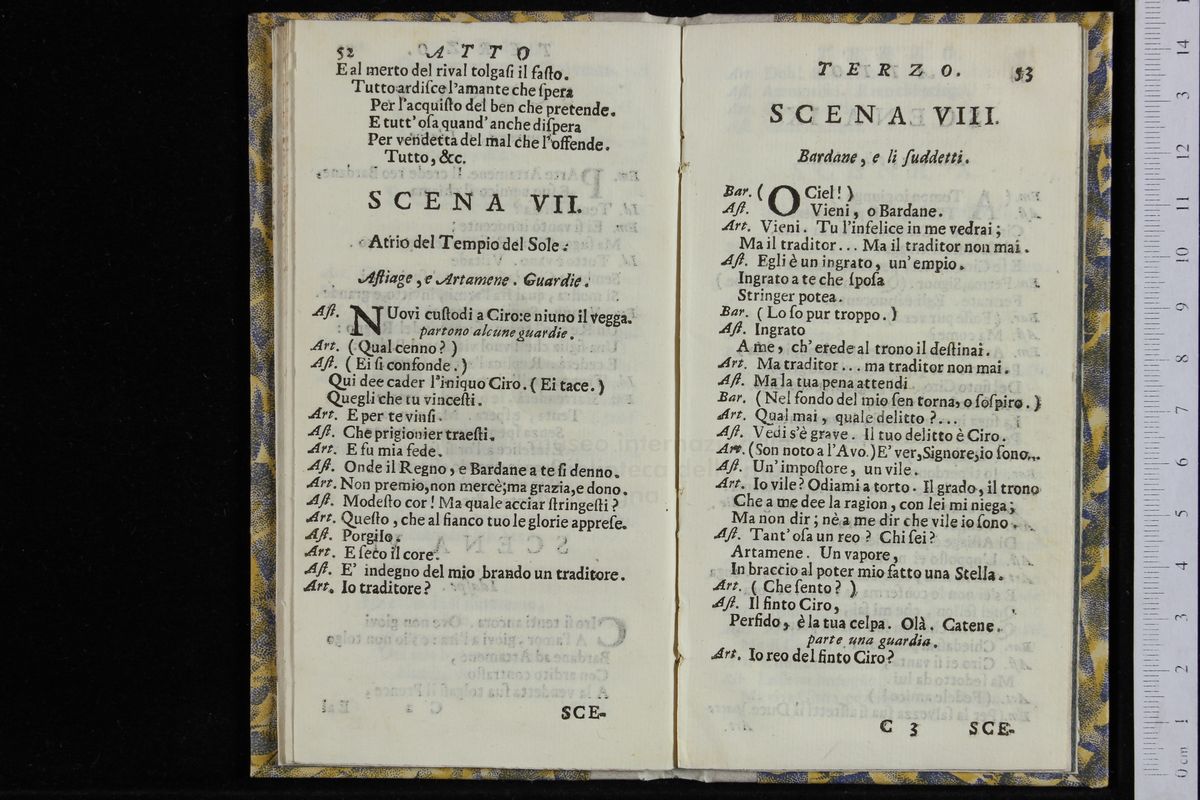 52 ATTO
E al merto del rival tolgaſi il faſto.
Tutto ardiſce l'amante che ſpera
Per l'acquiſto del ben che pretende.
E tutt' oſa quand' anche diſpera
Per vendetta del mal che l'offende.
Tutto, &c.
SCENA VII.
Atrio del Tempio del Sole.
Aſtiage, e Artamene. Guardie.
Aſt. NUovi cuſtodi a Ciro: e niuno il vegga.
partono alcune guardie.
Art. ( Qual cenno? )
Aſt. ( Ei ſi confonde. )
Qui dee cader l'iniquo Ciro. ( Ei tace. )
Quegli che tu vinceſti.
Art. E per te vinſi.
Aſt. Che prigionier traeſti.
Art. E fu mia fede.
Aſt. Onde il Regno, e Bardane a te ſi denno.
Art. Non premio, non mercè; ma grazia, e dono.
Aſt. Modeſto cor! Ma quale acciar ſtringeſti?
Art. Queſto, che al fianco tuo le glorie appreſe.
Aſt. Porgilo.
Art. E ſeco il core.
Aſt. E' indegno del mio brando un traditore.
Art. Io traditore?
SCE-
TERZO. 53
SCENA VIII.
Bardane, e li ſuddetti.
Bar. ( O Ciel! )
Aſt. Vieni, o Bardane.
Art. Vieni. Tu l'infelice in me vedrai;
Ma il traditor... Ma il traditor non mai.
Aſt. Egli è un ingrato, un' empio.
Ingrato a te che ſpoſa
Stringer potea.
Bar. ( Lo ſo pur troppo. )
Aſt. Ingrato
A me, ch' erede al trono il deſtinai.
Art. Ma traditor... ma traditor non mai.
Aſt. Ma la tua pena attendi
Bar. ( Nel fondo del mio ſen torna, o ſoſpiro. )
Art. Qual mai, quale delitto?...
Aſt. Vedi s'è grave. Il tuo delitto è Ciro.
Art. (Son noto a l'Avo.) E' ver, Signore, io ſono...
Aſt. Un' impoſtore, un vile.
Art. Io vile? Odiami a torto. Il grado, il trono
Che a me dee la ragion, con lei mi niega;
Ma non dir; nè a me dir che vile io ſono.
Aſt. Tant' oſa un reo? Chi ſei?
Artamene. Un vapore,
In braccio al poter mio fatto una Stella.
Art. ( Che ſento? )
Aſt. Il finto Ciro,
Perfido, è la tua celpa. Olà. Catene.
parte una guardia.
Art. Io reo del finto Ciro?
C 3 SCE-